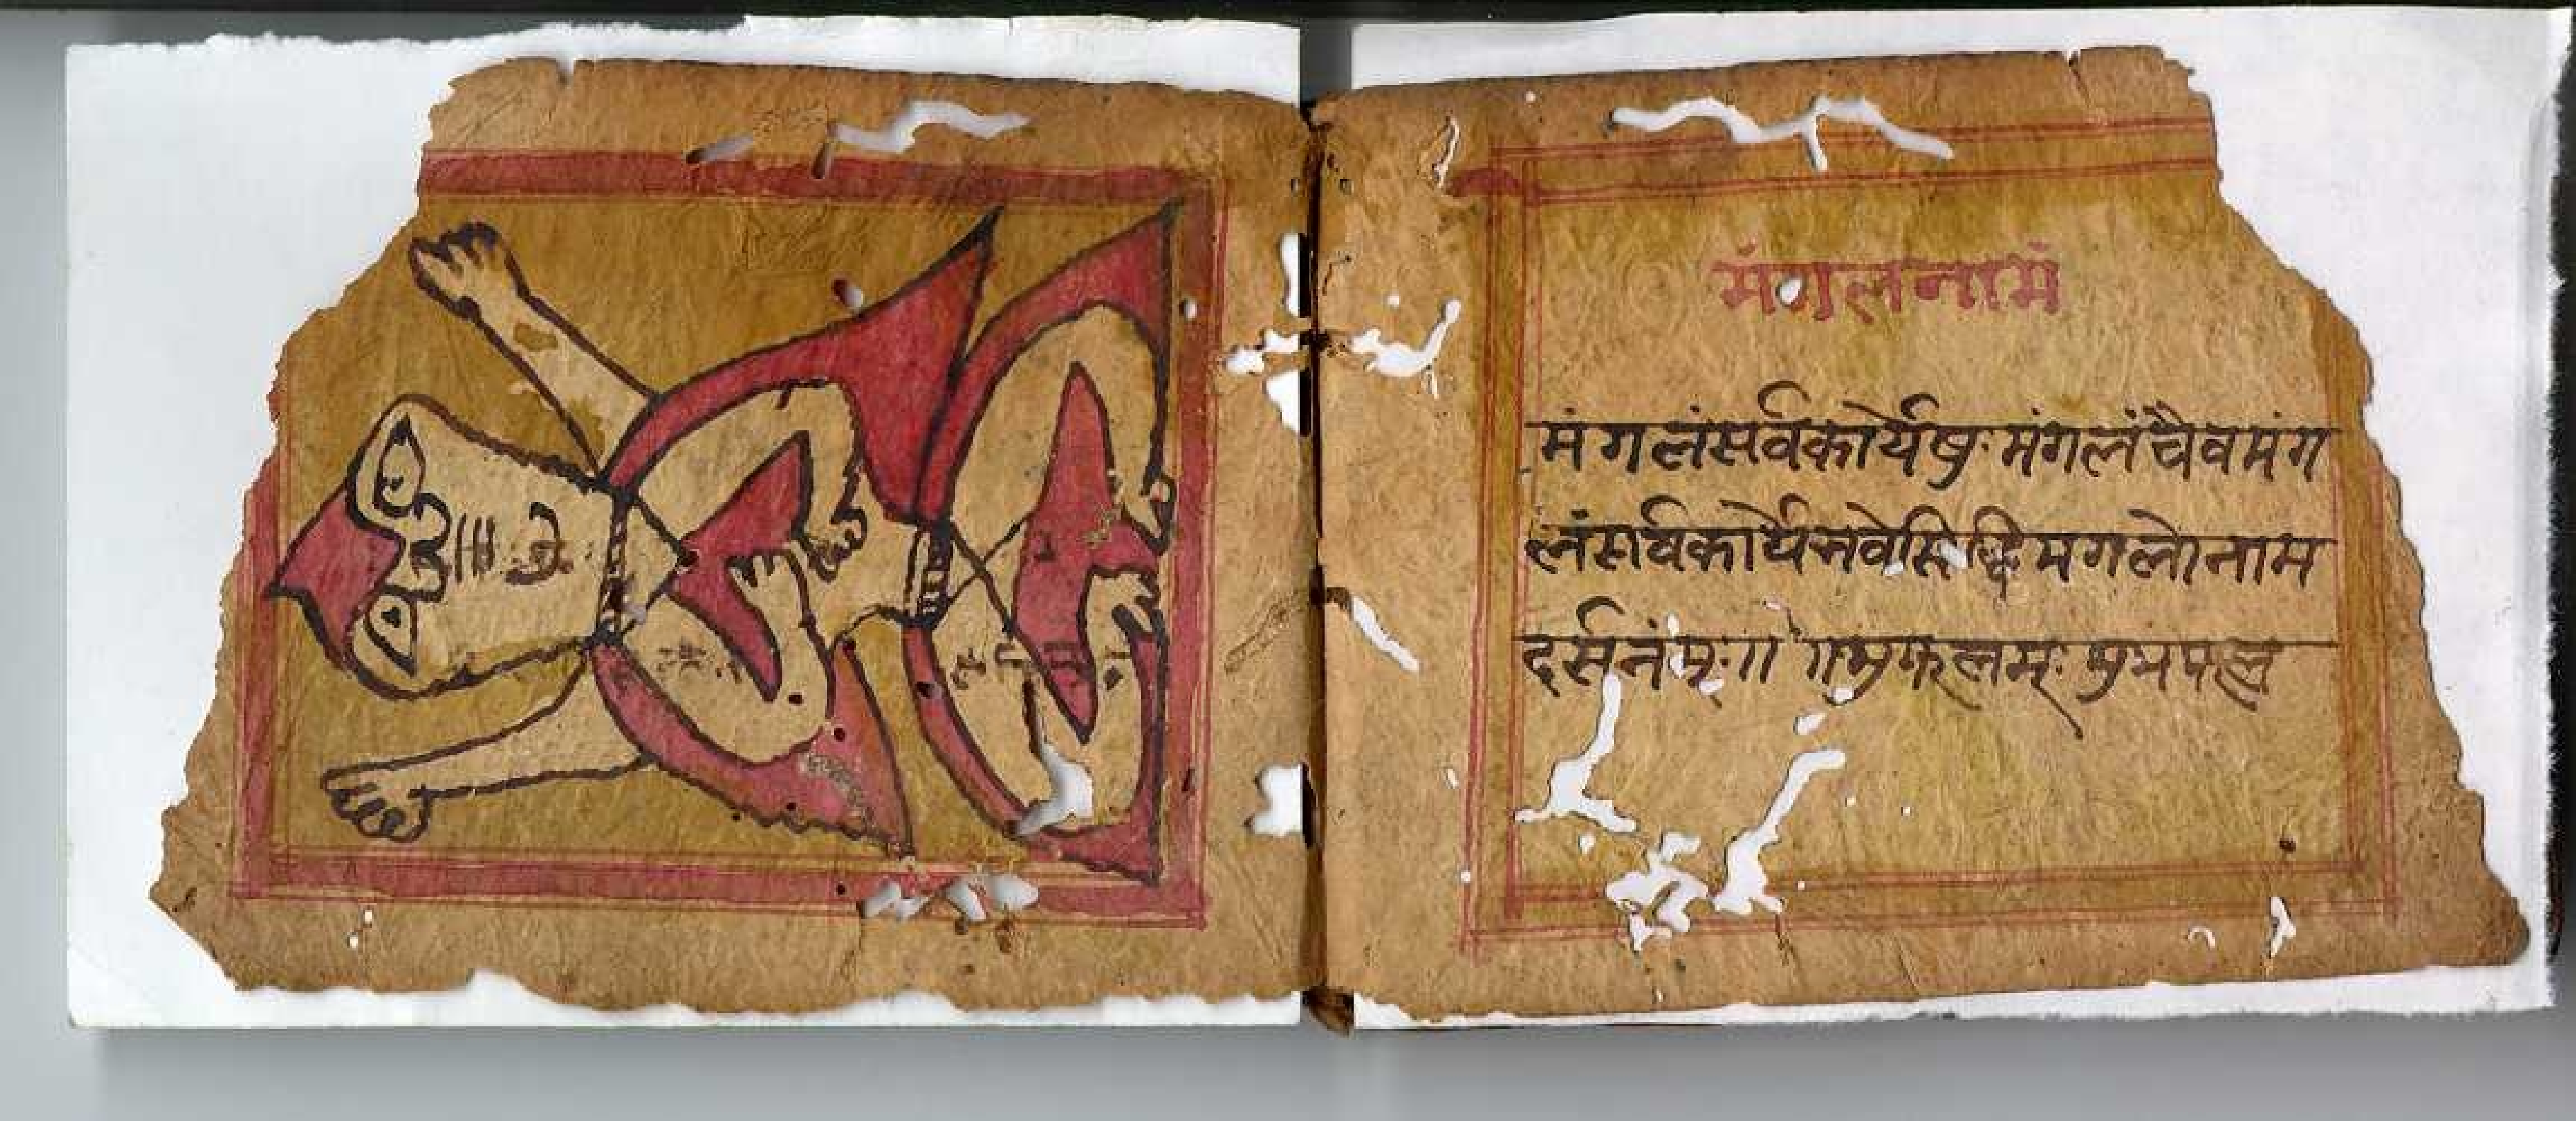 मंगलनामं
मंगलंसर्वकार्येषु मंगलं चैवमंग
लंसर्वकार्यैनवेसिद्धिमगलोनाम
दर्सनंम्ः॥ ॥ फलम्ः पुत्रपल